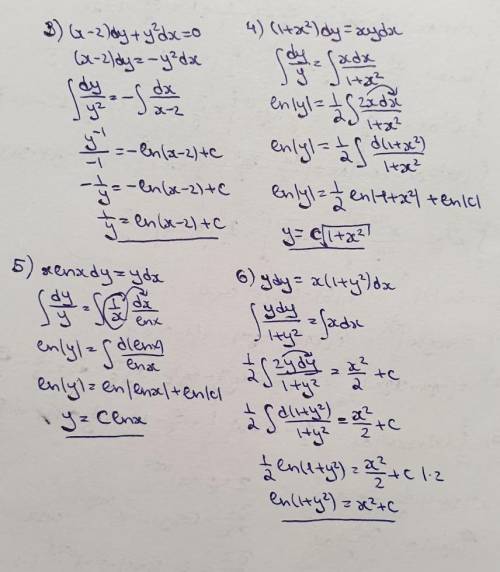 3) (x-2)dy+y²dx=0
(x-2)dy=-y²dx
∫dy/y²=-∫dx/x-2
y⁻¹/-1=-en(x-2)+c
-1/y=-en(x-2)+c
1/y=en(x-2)+c
4) (1+x²)dy=xydx
∫dy/y=∫xdx/1+x²
en|y|=1/2∫2xdx/1+x²
en|y|=1/2∫d(1+x²)/1+x²
en|y|=1/2 en|1+x²|+en|c|
y=c√1+x²
5) xenxdy=ydx
∫dy/y=∫1/x dx/enx
en|y|=∫d(enx)/enx
en|y|=en|enx|+en|c|
y=cenx
6) ydy=x(1+y²)dx
∫ydy/1+y²=∫xdx
1/2∫2ydy/1+y²=x²/2+c
1/2∫d(1+y²)/1+y²=x²/2+c
1/2en(1+y²)=x²/2+c |·2
en(1+y²)=x²+c